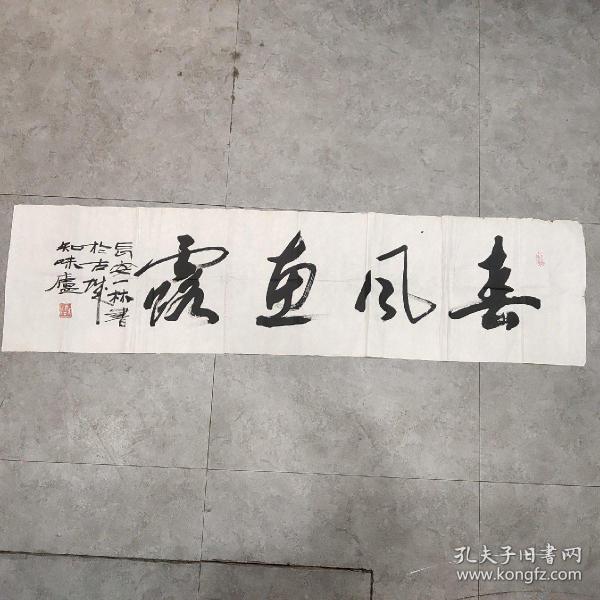 春风惠露
长安一林书
於古城
知味庐
孔夫子旧书网
www.kongfz.com